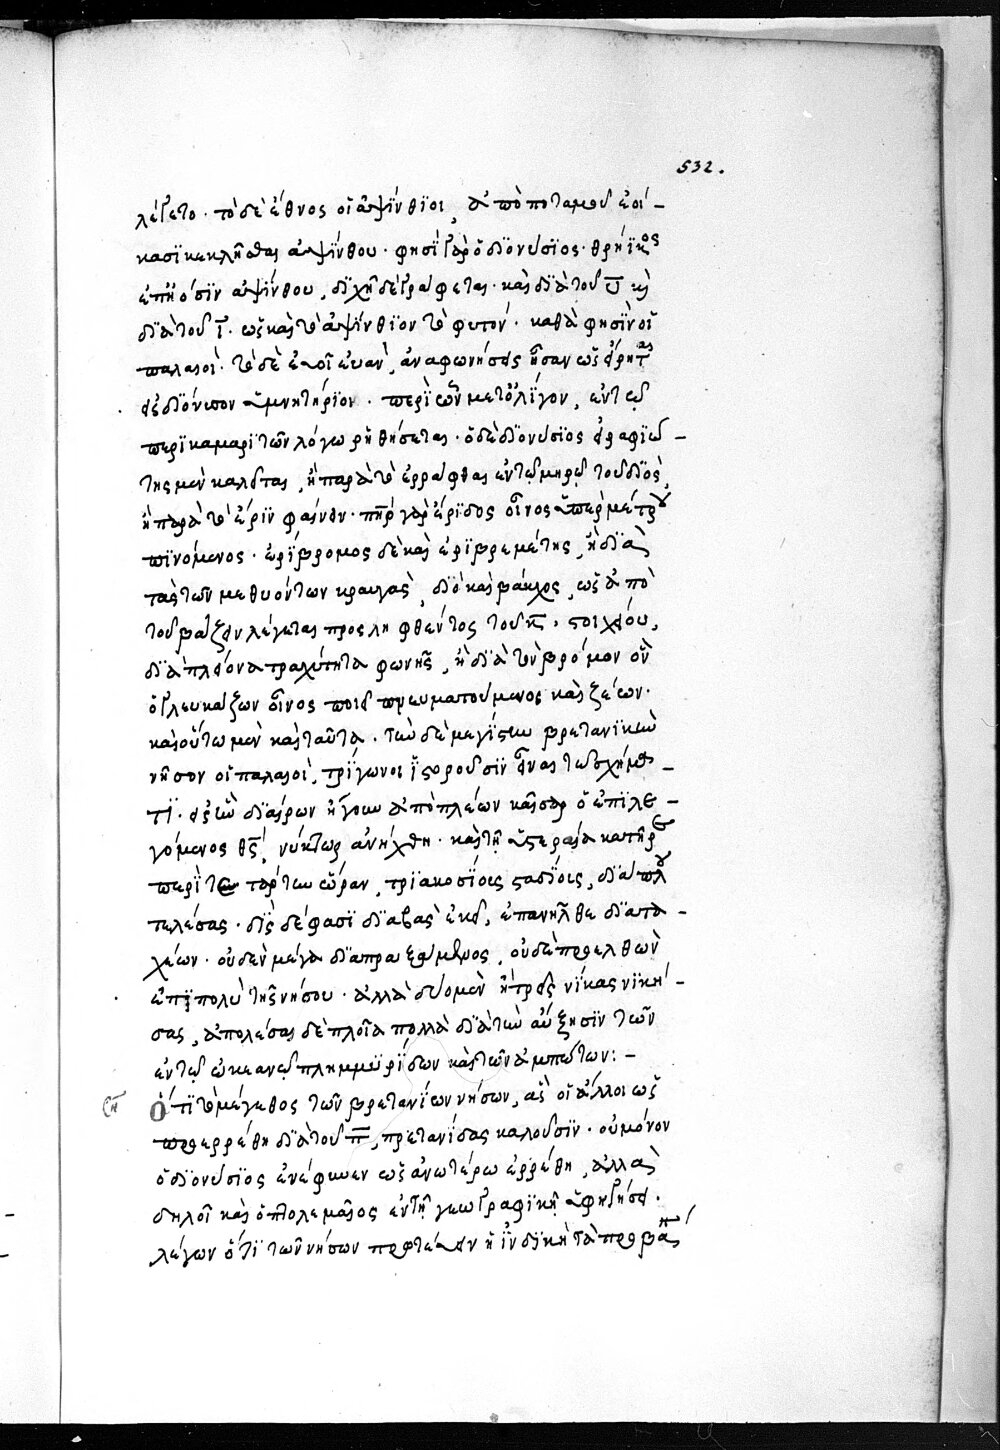 532.
λέγετο · τὸ δὲ ἔθνος οἱ ἀψίνθιοι, ἀπὸ ποταμοῦ ἐοί-
κασι κεκλῆσθαι ἀψίνθου · φησὶ γὰρ ὁ διονύσιος · θρήϊκος
ἐπ' ἠϊόσιν ἀψίνθου, διχῆ δὲ γράφεται · καὶ διὰ τοῦ υ καὶ
διὰ τοῦ ι · ὡς καὶ τὸ ἀψίνθιον τὸ φυτόν · καθά φησιν οἱ
παλαιοί · τὸ δὲ εὐοῖ εὐάν, ἀναφωνήσεις ἦσαν ὡς εἴρηται
εἰς διόνυσον ὑμνητήριοι · περὶ ὧν μετ' ὀλίγον, ἐν τῷ
περὶ καμαριτῶν λόγω ῥηθήσεται · ὁ δὲ διονύσιος εἰραφιώ-
της μὲν καλεῖται, ἢ παρὰ τὸ ἐρράφθαι ἐν τῷ μηρῷ τοῦ διός,
ἢ παρὰ τὸ ἔριν φαίνειν · πῆρ γὰρ ἔριδος οἶνος ὑπὲρ μέτρου
πινόμενος · ἐρίβρομος δὲ καὶ ἐριβρεμέτης, ἢ διὰ
τὰς τῶν μεθυόντων κραυγάς, διὸ καὶ βάκχος, ὡς ἀπὸ
τοῦ βάζειν λέγεται προσληφθέντος τοῦ κ · στοιχείου,
διὰ πλείονα τραχύτητα φωνῆς, ἢ διὰ τὸν βρόμον ὃν
ὁ γλευκάζων οἶνος ποιεῖ πνευματούμενος καὶ ζέων ·
καὶ οὕτω μὲν καὶ ταῦτα · τὴν δὲ μεγίστην βρετανικὴν
νῆσον οἱ παλαιοί, τρίγωνον ἱστοροῦσιν εἶναι τῷ σχήμα-
τι · εἰς ἣν διαίρων ἤγουν ἀποπλέων καῖσαρ ὁ ἐπιλε-
γόμενος θεός, νύκτωρ ἀνήχθη · καὶ τῆ ὑστεραία κατῆρε
περὶ τετάρτην ὥραν, τριακοσίοις σταδίοις, δίαπλου
τελέσας · δὶς δέ φασι διαβὰς ἐκεῖ, ἐπανῆλθε διὰ τα-
χέων · οὐδὲν μέγα διαπραξάμενος, οὐδὲ προελθὼν
ἐπὶ πολὺ τῆς νήσου · ἀλλὰ δύο μὲν ἢ τρεῖς νίκας νική-
σας, ἀπολέσας δὲ πλοῖα πολλὰ διὰ τὴν αὔξησιν τῶν
ἐν τῷ ὠκεανῷ πλημμυρίδων καὶ τῶν ἀμπώτεων: -
ὅτι τὸ μέγεθος τῶν βρετανίων νήσων, ἃς οἱ ἄλλοι ὡς
προερρέθη διὰ τοῦ π, πρετανίδας καλοῦσιν · οὐ μόνον
ὁ διονύσιος ἐνέφηνεν ὡς ἀνωτέρω ἐρρέθη, ἀλλὰ
δηλοῖ καὶ ὁ πτολεμαῖος ἐν τῆ γεωγραφικῆ ὑφηγήσει ·
λέγων ὅτι τῶν νήσων πρωτεύειν ἡ ἰνδικὴ